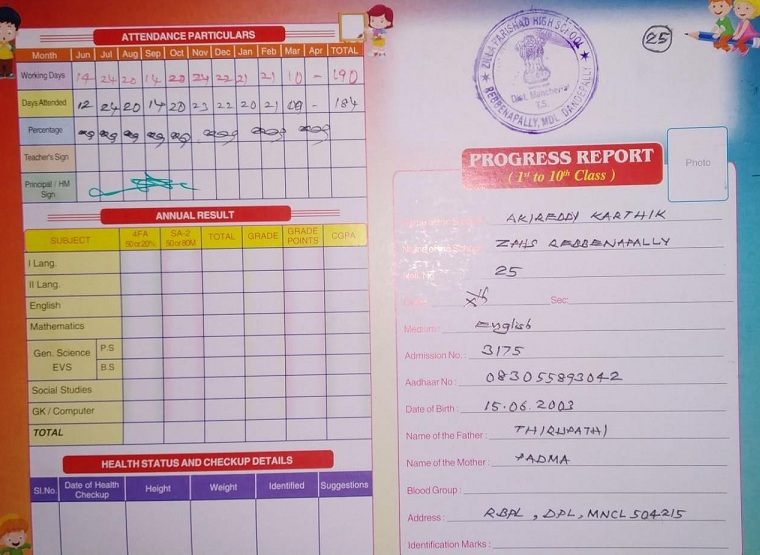 ATTENDANCE PARTICULARS
Month Jun Jul Aug Sep Oct Nov Dec Jan Feb Mar Apr TOTAL
Working Days 14 24 20 14 20 24 22 21 21 10 - 190
Days Attended 12 24 20 14 20 23 22 20 21 09 - 184
Percentage
Teacher's Sign
Principal / HM
Sign
ANNUAL RESULT
SUBJECT 4FA 50 or 20% SA-2 50 or 80M TOTAL GRADE GRADE POINTS CGPA
I Lang.
II Lang.
English
Mathematics
Gen. Science P.S
EVS B.S
Social Studies
GK / Computer
TOTAL
HEALTH STATUS AND CHECKUP DETAILS
Sl.No. Date of Health Checkup Height Weight Identified Suggestions
ZILLA PARISHAD HIGH SCHOOL
Dist. Mancherial
T.S.
REBBENAPALLY, MDL. DANDEPALLY
25
PROGRESS REPORT
( 1st to 10th Class )
Photo
AKIREDDY KARTHIK
ZPHS REBBENAPALLY
25
Xth Sec:
Medium: English
Admission No.: 3175
Aadhaar No: 083055893042
Date of Birth: 15.06.2003
Name of the Father: THIRUPATHI
Name of the Mother: PADMA
Blood Group:
Address: RBPL, DPL, MNCL 504215
Identification Marks: